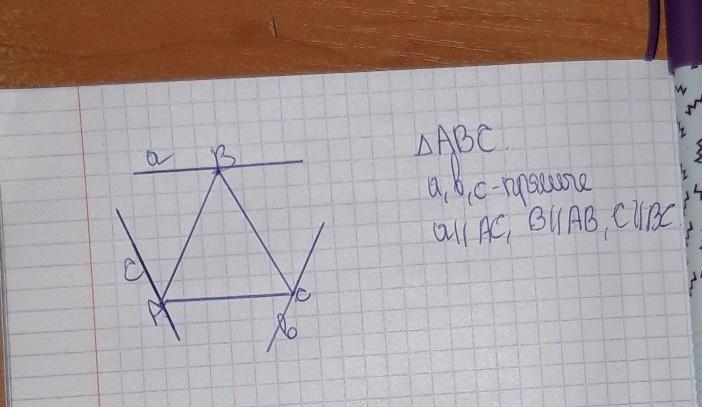 a
B
△ABC.
a, b, c - прямые
a || AC, B || AB, C || BC
C
A
C
b